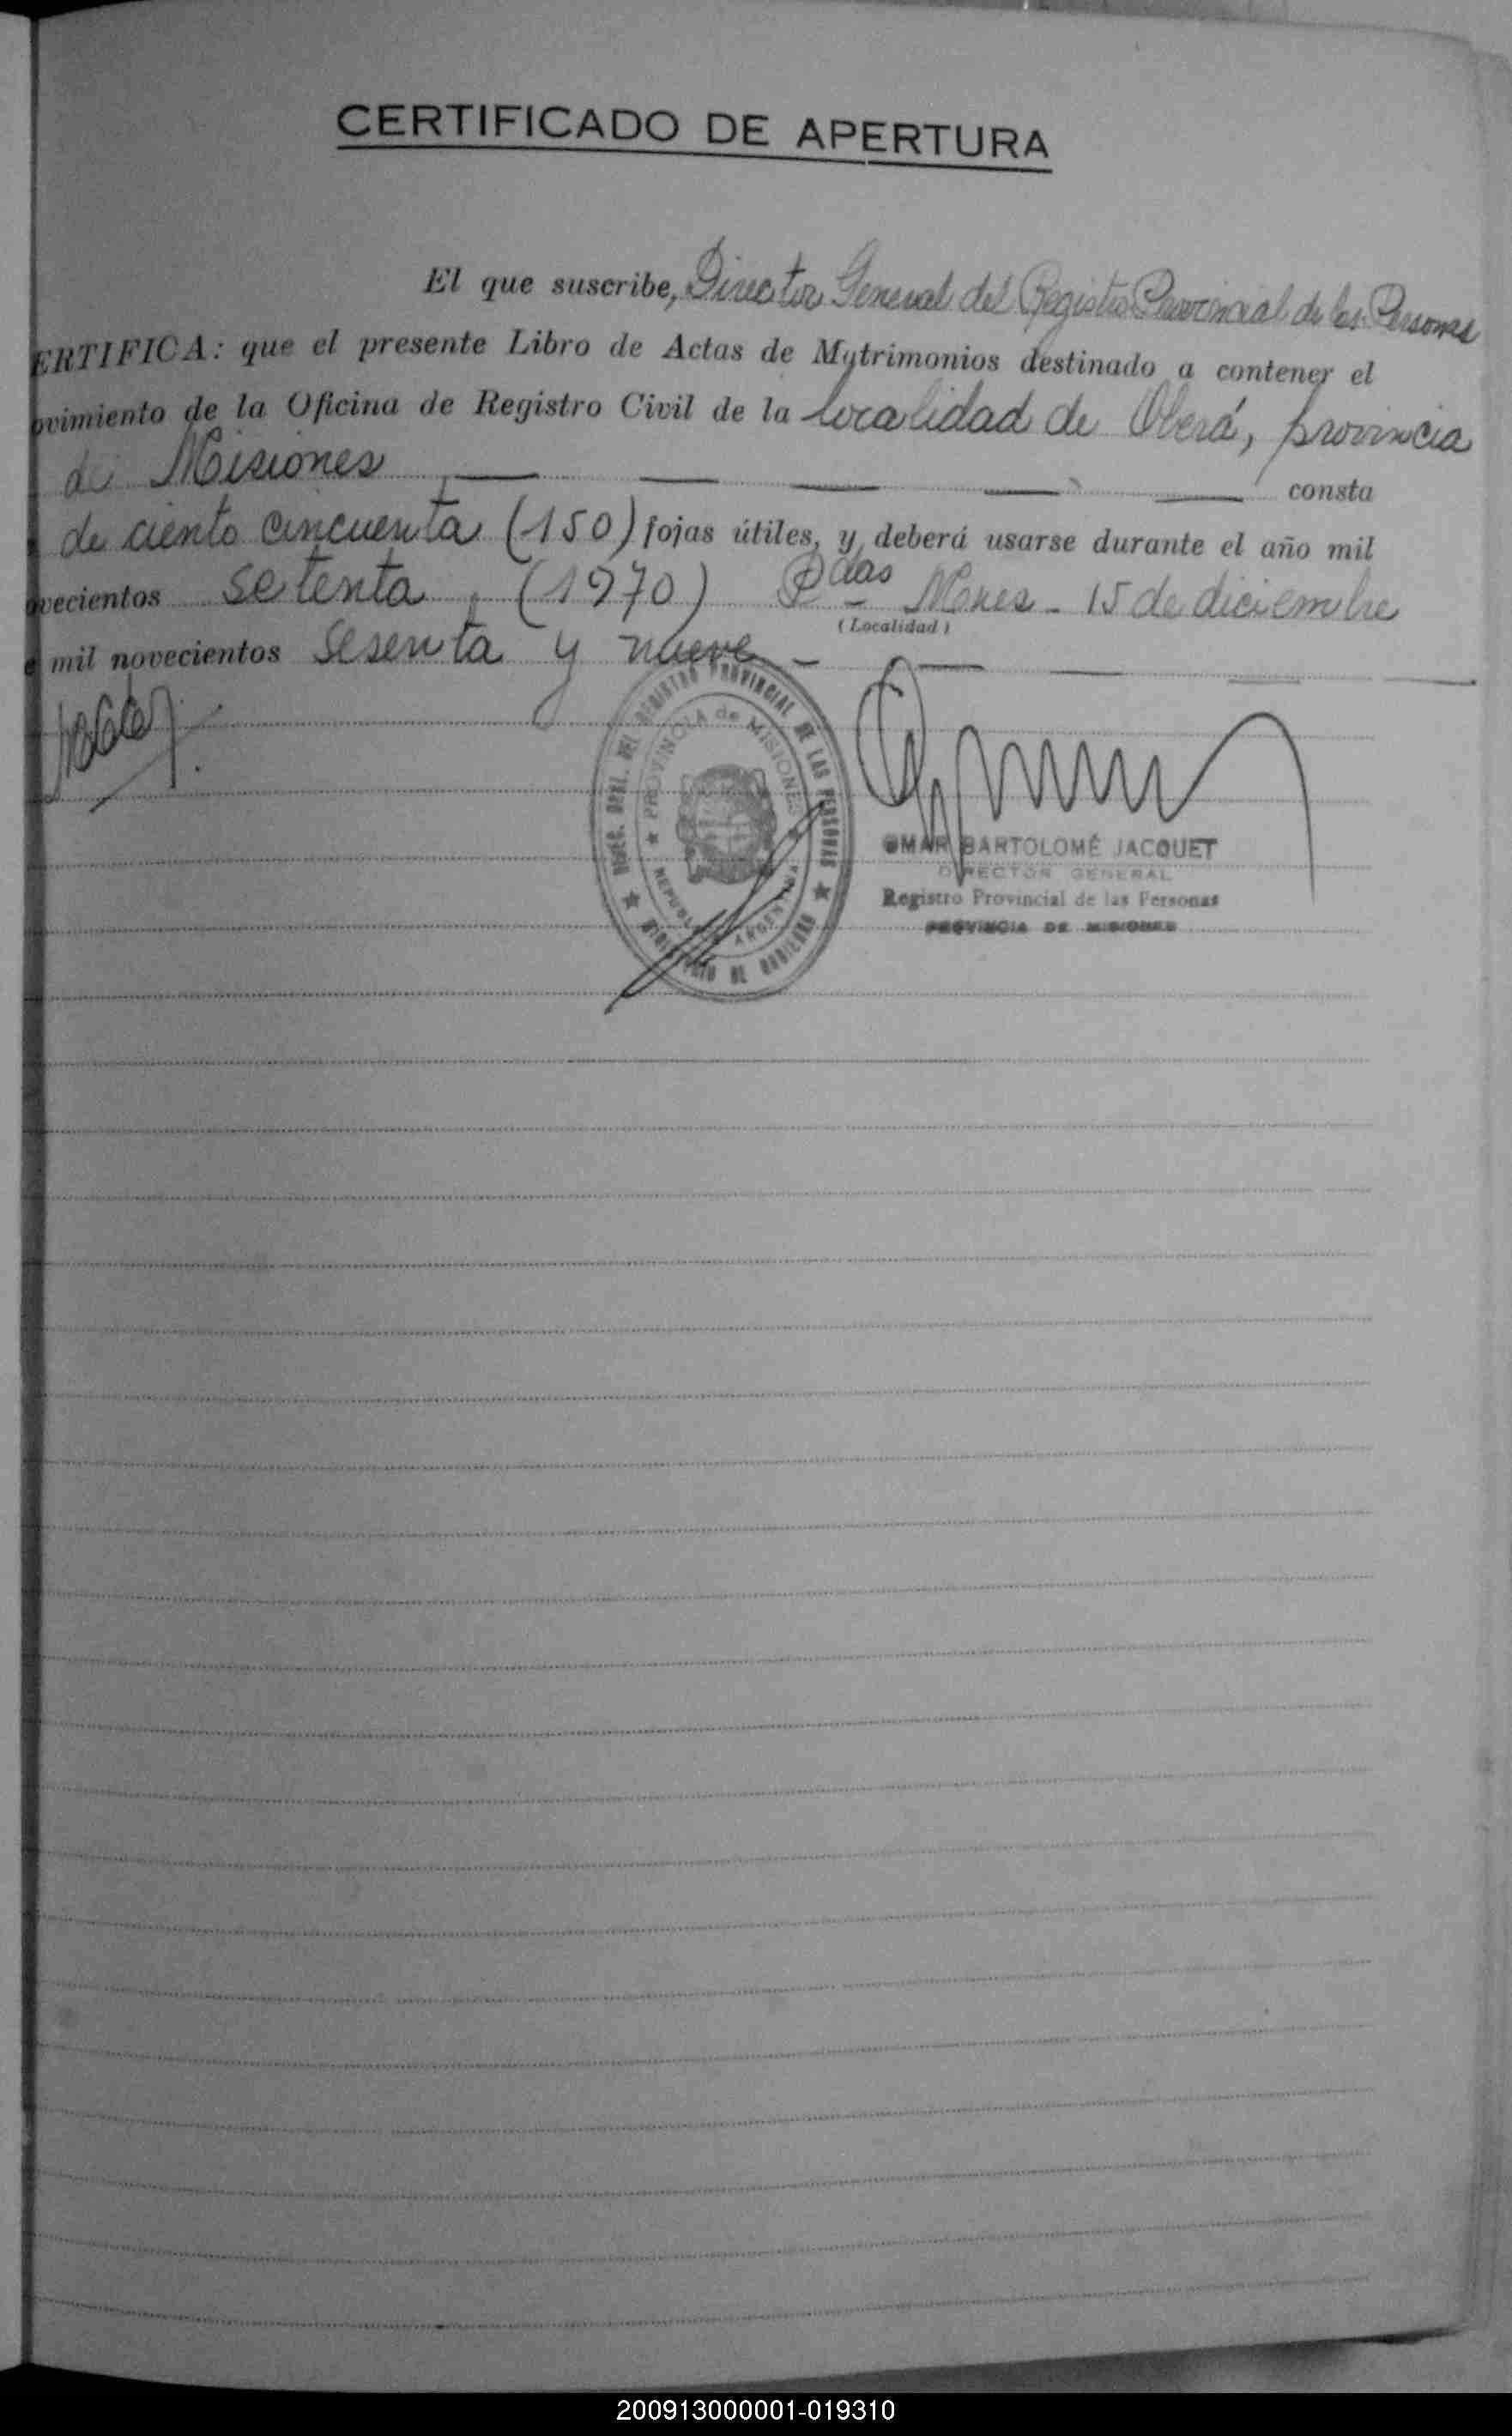 CERTIFICADO DE APERTURA
El que suscribe, Director General del Registro Provincial de las Personas
ERTIFICA: que el presente Libro de Actas de Matrimonios destinado a contener el
ovimiento de la Oficina de Registro Civil de la localidad de Oberá, provincia
de Misiones consta
de ciento cincuenta (150) fojas útiles, y deberá usarse durante el año mil
ovecientos setenta, (1970) Pdas Mnes - 15 de diciembre
(Localidad)
e mil novecientos sesenta y nueve -
DIREC. GRAL. DEL REGISTRO PROVINCIAL DE LAS PERSONAS
PROVINCIA de MISIONES
REPUBLICA ARGENTINA
MINISTERIO DE GOBIERNO
OMAR BARTOLOMÉ JACQUET
DIRECTOR GENERAL
Registro Provincial de las Personas
PROVINCIA DE MISIONES
200913000001-019310